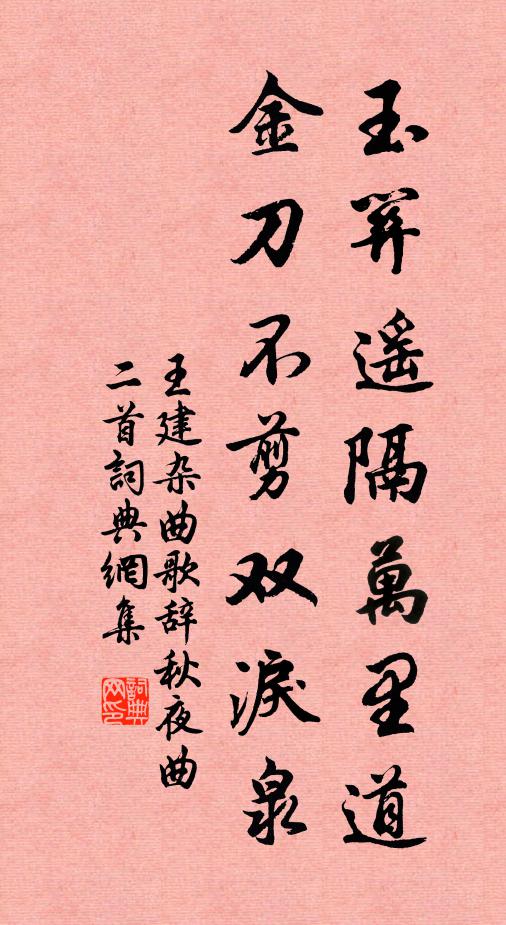 玉關遙隔萬里道
金刀不剪双淚泉
王建杂曲歌辞秋夜曲
二首詞典網集
詞典网印